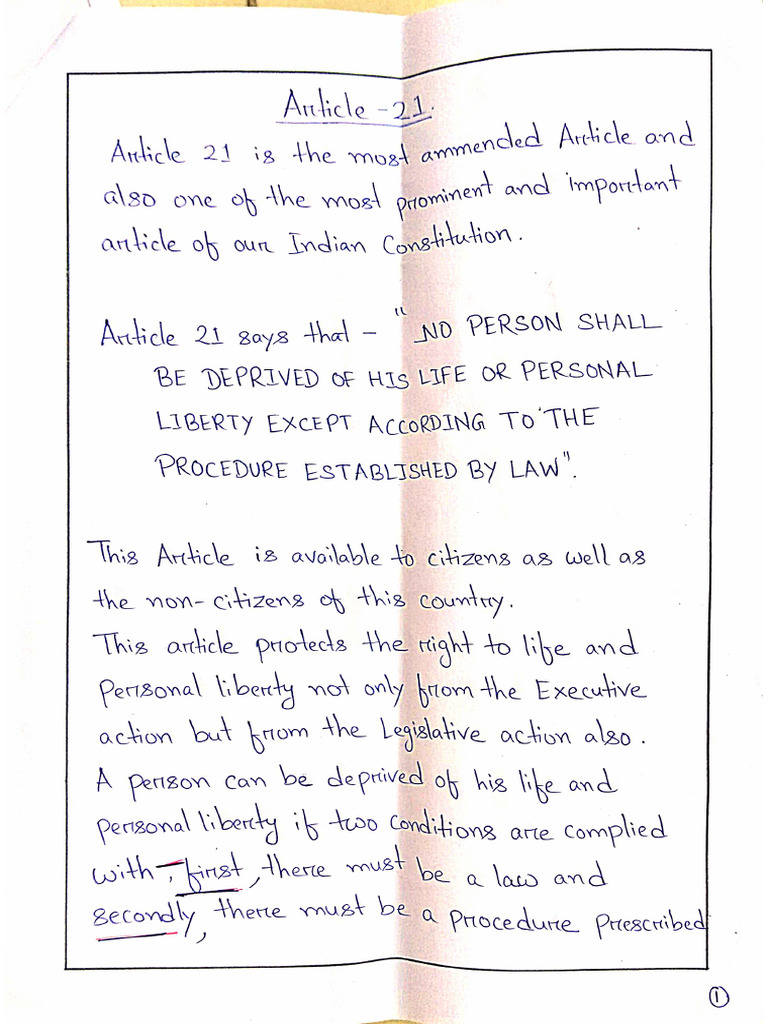 Article - 21.
Article 21 is the most ammended Article and
also one of the most prominent and important
article of our Indian Constitution.
Article 21 says that - "NO PERSON SHALL
BE DEPRIVED OF HIS LIFE OR PERSONAL
LIBERTY EXCEPT ACCORDING TO THE
PROCEDURE ESTABLISHED BY LAW".
This Article is available to citizens as well as
the non-citizens of this country.
This article protects the right to life and
Personal liberty not only from the Executive
action but from the Legislative action also.
A person can be deprived of his life and
personal liberty if two conditions are complied
with, first, there must be a law and
secondly, there must be a procedure prescribed
1